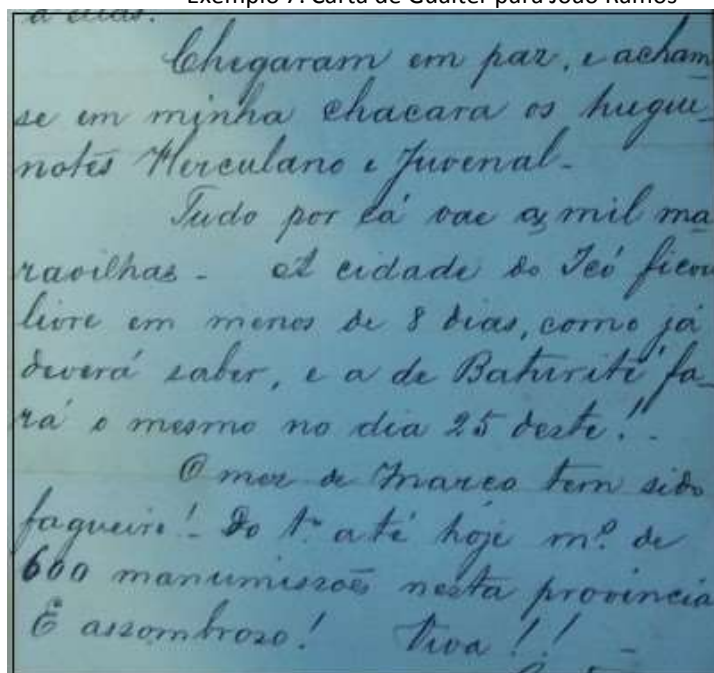 Exemplo 7: Carta de Gualter para João Ramos
a ellas.
Chegaram em paz, e acham
se em minha chacara os hugue_
notes Herculano e Juvenal_
Tudo por cá vae ás mil ma
ravilhas_ A cidade do Icó ficou
livre em menos de 8 dias, como já
deverá saber, e a de Baturité fa_
rá o mesmo no dia 25 deste!_
O mez de Março tem sido
fagueiro! Do 1º até hoje mº. de
600 manumissões nesta provincia
É assombroso! Viva!! _